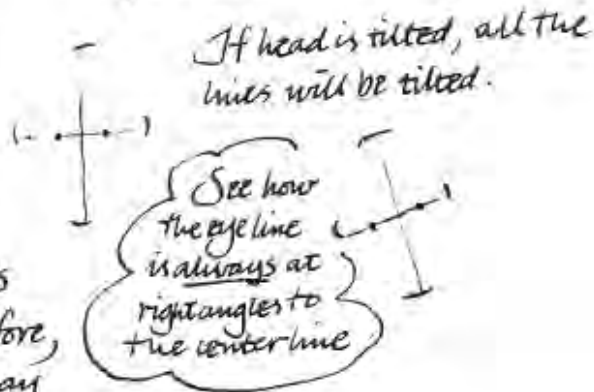 If head is tilted, all the
lines will be tilted.
See how
the eye line
is always at
right angles to
the center line